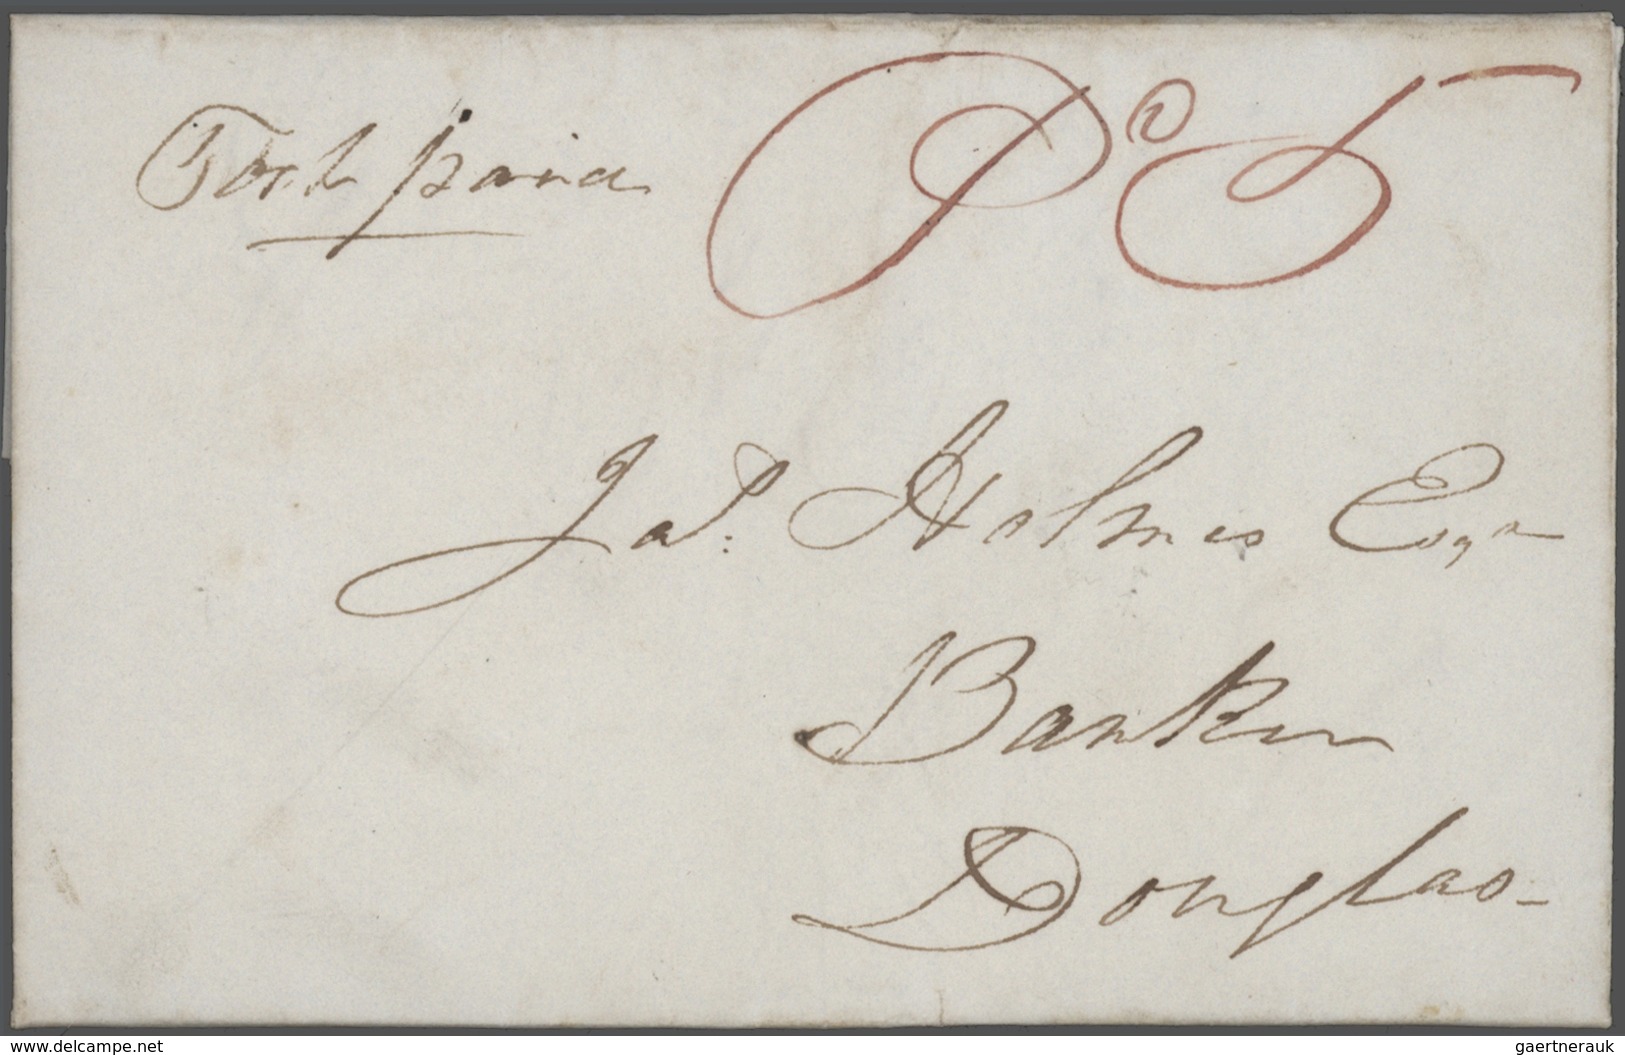 Post paid
Pd 5
Jas. Holmes Esqr
Banker
Douglas-
www.delcampe.net
gaertnerauk